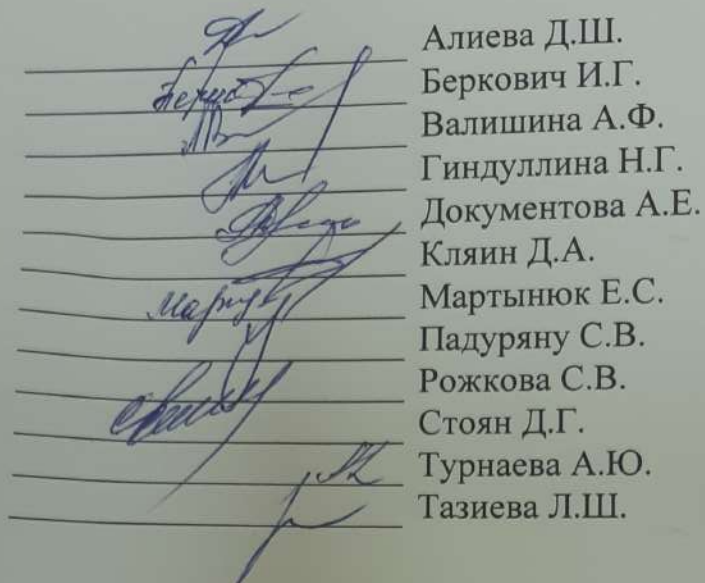 Алиева Д.Ш.
Беркович И.Г.
Валишина А.Ф.
Гиндуллина Н.Г.
Документова А.Е.
Кляин Д.А.
Мартынюк Е.С.
Падуряну С.В.
Рожкова С.В.
Стоян Д.Г.
Турнаева А.Ю.
Тазиева Л.Ш.